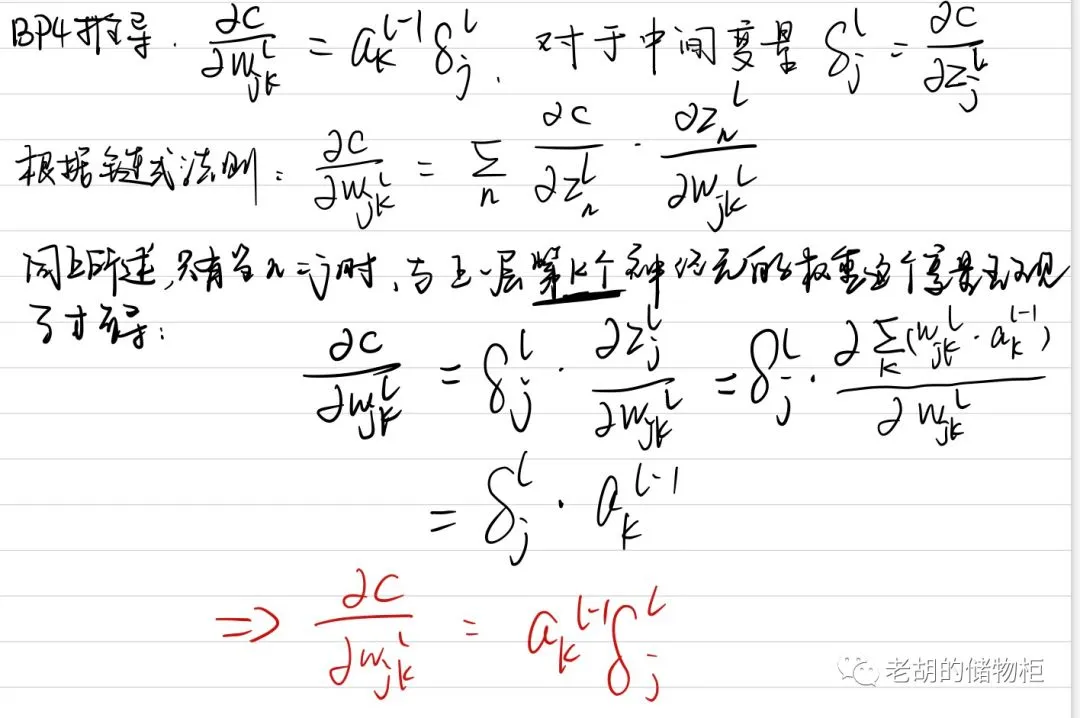 BP4推导. ∂C/∂w_{jk}^{l} = a_k^{l-1} δ_j^l. 对于中间变量 δ_j^l = ∂C/∂z_j^l
根据链式法则: ∂C/∂w_{jk}^{l} = Σ_n ∂C/∂z_n^l · ∂z_n^l/∂w_{jk}^{l}
同上所述,只有当n=j时,与上一层第k个神经元的权重这个变量出现
了才有导:
∂C/∂w_{jk}^{l} = δ_j^l · ∂z_j^l/∂w_{jk}^{l} = δ_j^l · ∂Σ_k(w_{jk}^{l} · a_k^{l-1})/∂w_{jk}^{l}
= δ_j^l · a_k^{l-1}
=> ∂C/∂w_{jk}^{l} = a_k^{l-1} δ_j^l
老胡的储物柜